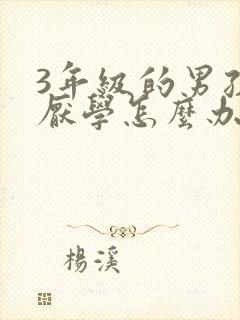 3年級的男孩
厭學怎麼办
楊溪